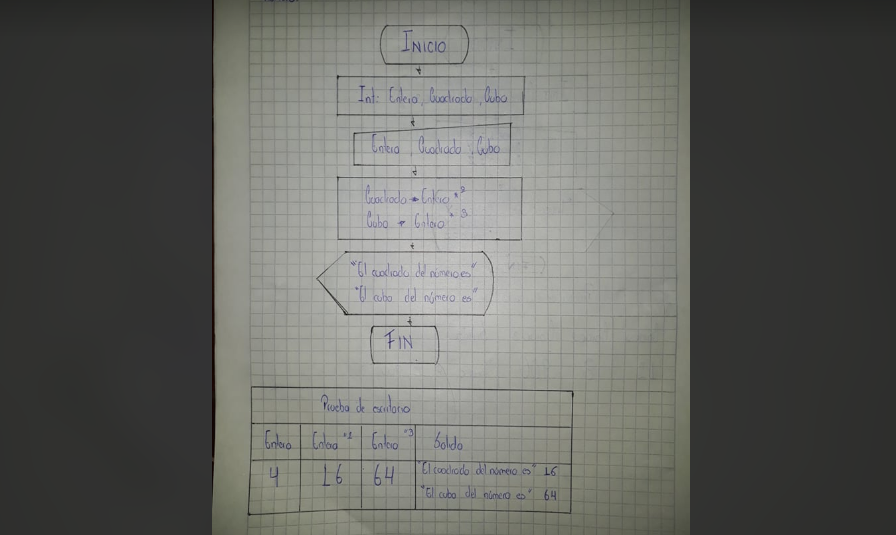 INICIO
Int: Entero, Cuadrado, Cubo
Entero, Cuadrado, Cubo
Cuadrado ← Entero **2
Cubo ← Entero **3
"El cuadrado del número es"
"El cubo del número es"
FIN
Prueba de escritorio
Entero Entero Entero **3 Salida
4 16 64 "El cuadrado del número es" 16
"El cubo del número es" 64